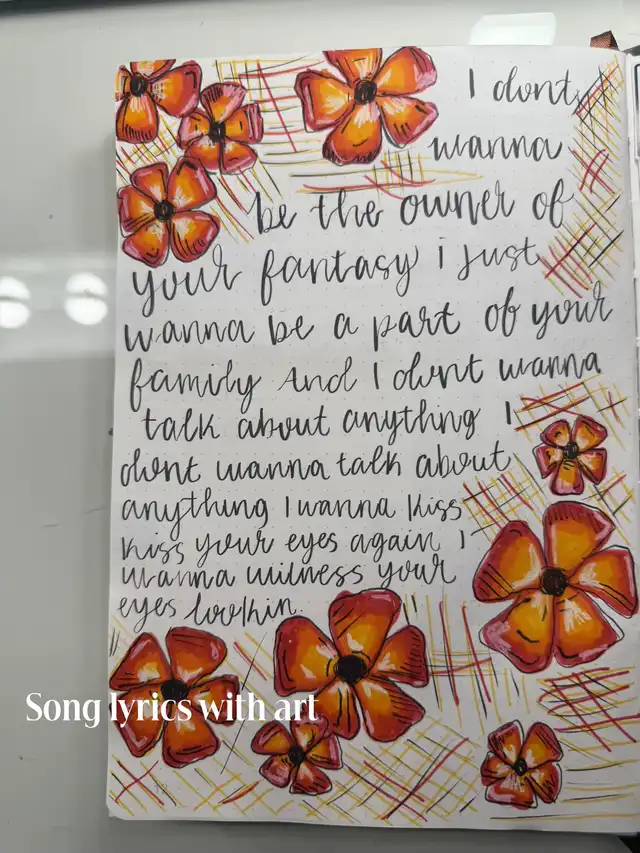 I dont
wanna
be the owner of
your fantasy i just
wanna be a part of your
family And I dont wanna
talk about anything I
dont wanna talk about
anything I wanna kiss
kiss your eyes again I
wanna witness your
eyes lookin.
Song lyrics with art